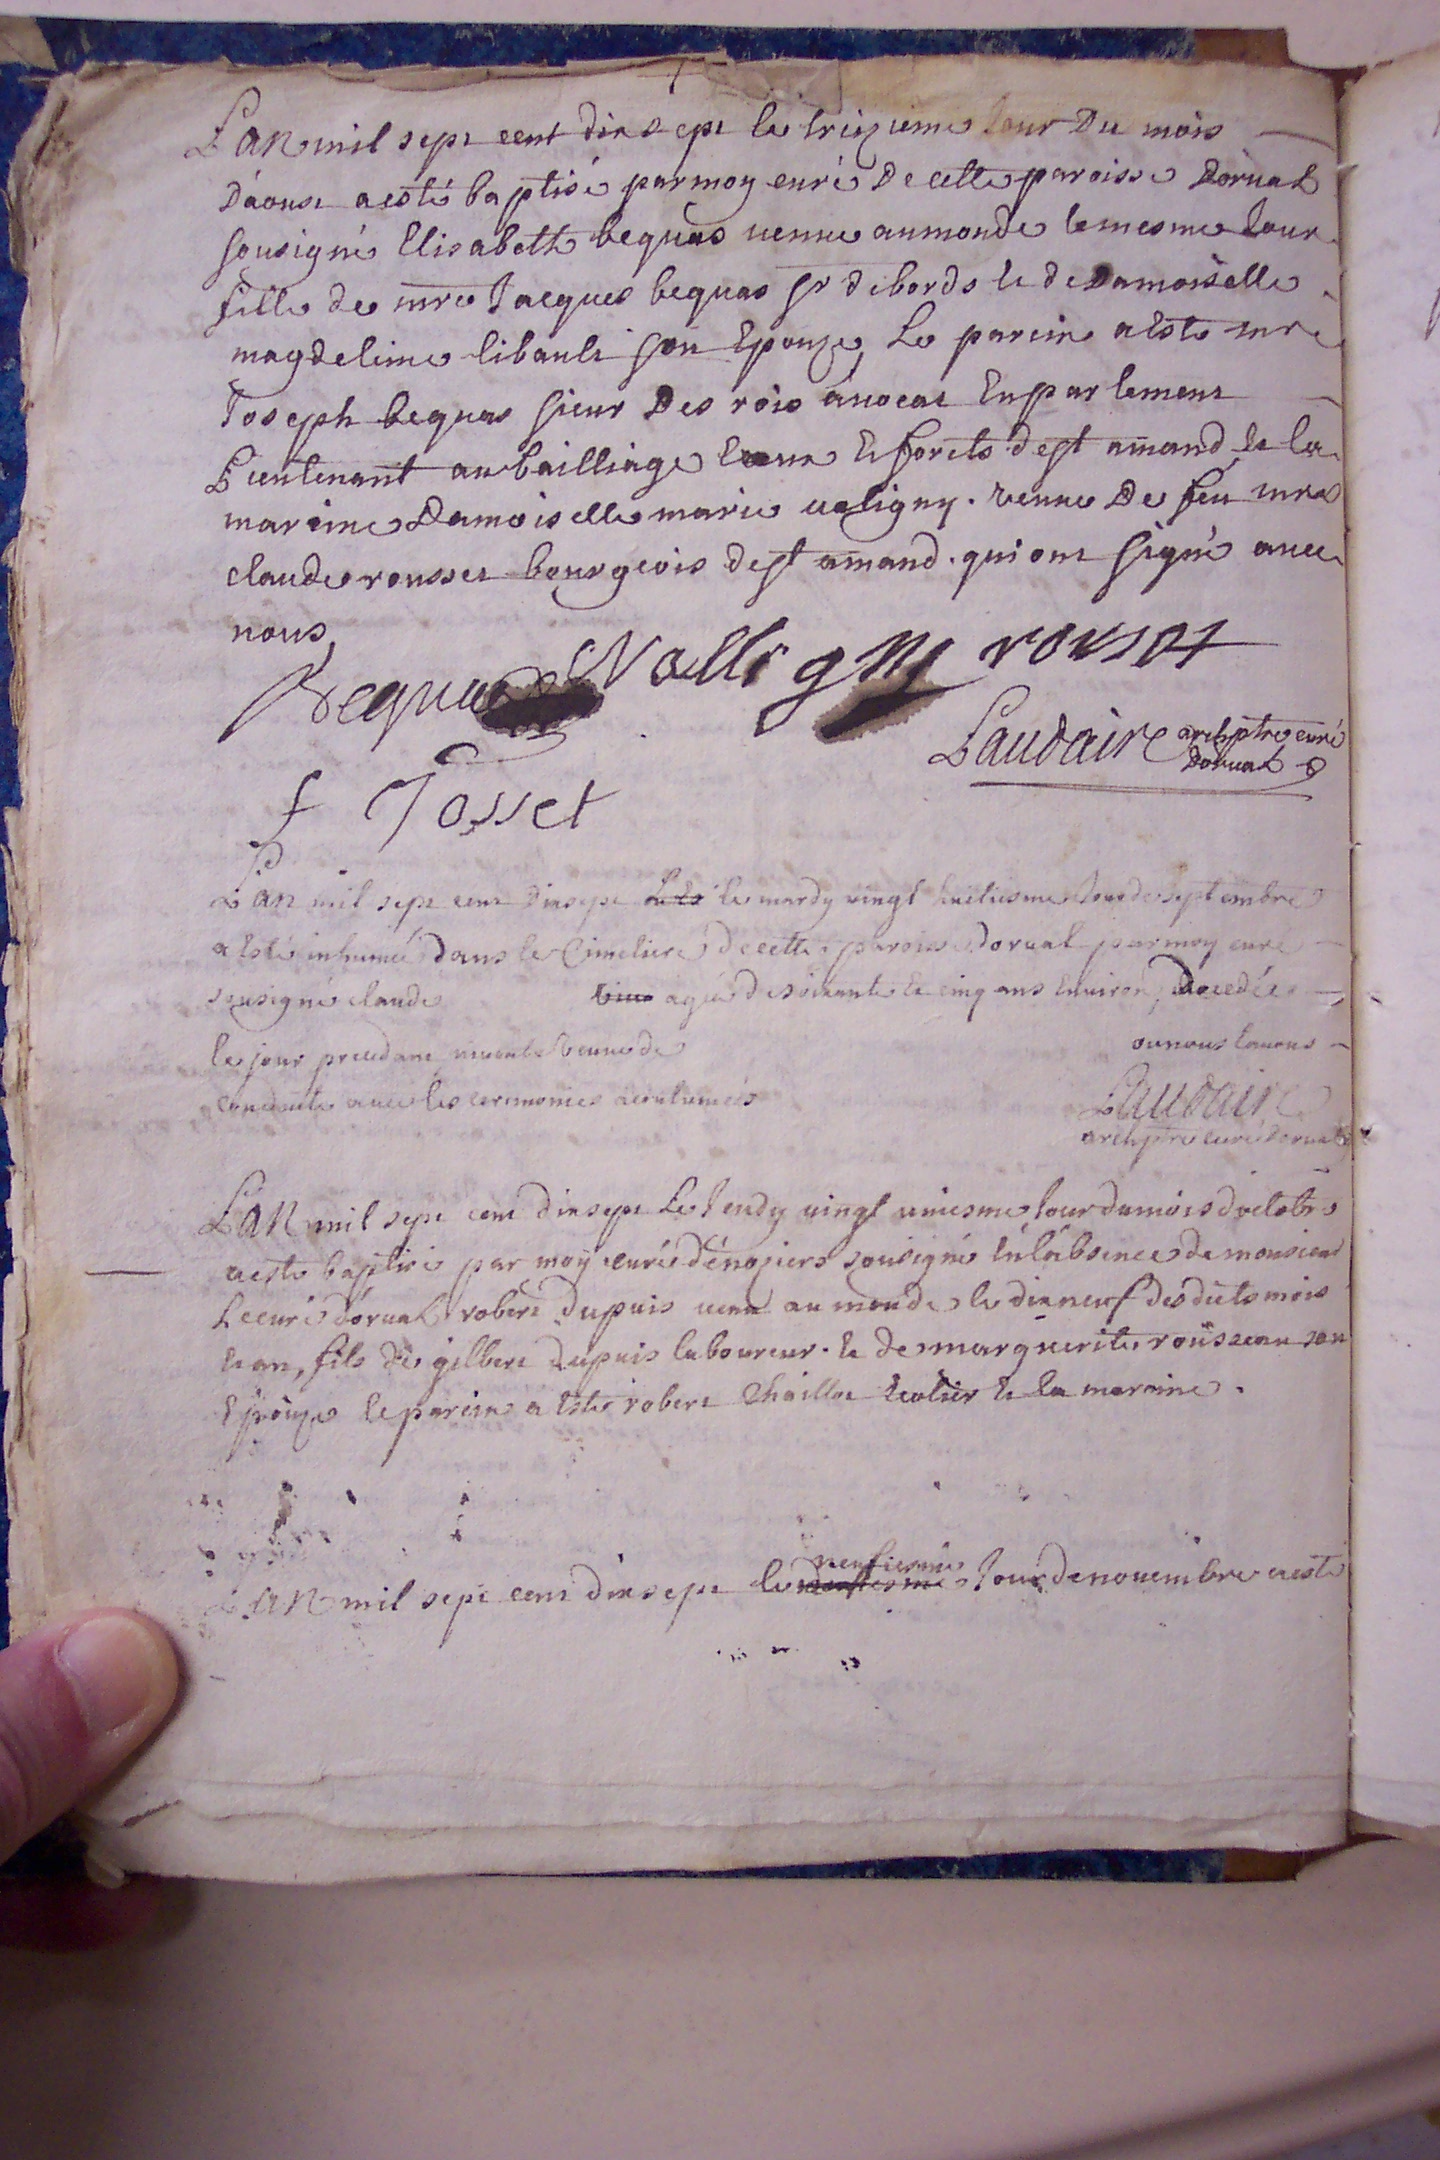 L'an mil sept cent dix sept le treizieme Jour Du mois
D'aoust a esté baptisé par moy curé De cette paroisse Dorval
sousigné Elisabeth bequas venue au monde le mesme Jour
fille de mre Jacques bequas sr debords & de Damoiselle
magdeleine libault son Epouze, Le parein a esté mre
Joseph bequas sieur Des rois avocat En parlement
Lieutenant au bailliage Eaux & forets de st amand & la
mareine Damoiselle marie valigny. veuve De feu mre
claude rousset bourgeois de st amand. qui ont signé avec
nous,
Bequas Valligny rousset
Laudair archiptre curé
Dorval
f Josset
L'an mil sept cent dix sept le mardy vingt huitiesme Jour de septembre
a esté inhumé dans le Cimetiere de cette paroisse dorval par moy curé
sousigné claude agée de soixante & cinq ans Environ, decedée
le jour precedant veuve de ou nous l'avons
conduite avec les ceremonies acoutumées
Laudair
archiptre curé dorval
L'an mil sept cent dix sept Le Jeudy vingt uniesme Jour du mois d'octobre
a esté baptisé par moy curé d'enogiers sousigné En l'absence de monsieur
Le curé dorval robert dupuis venu au monde le dix neuf des dicts mois
& an, fils de gilbert dupuis laboureur. & de marguerite rousseau son
Epouze le parein a esté robert Chaillot Ecolier & la maraine.
L'an mil sept cent dix sept le neufiesme Jour de novembre a esté